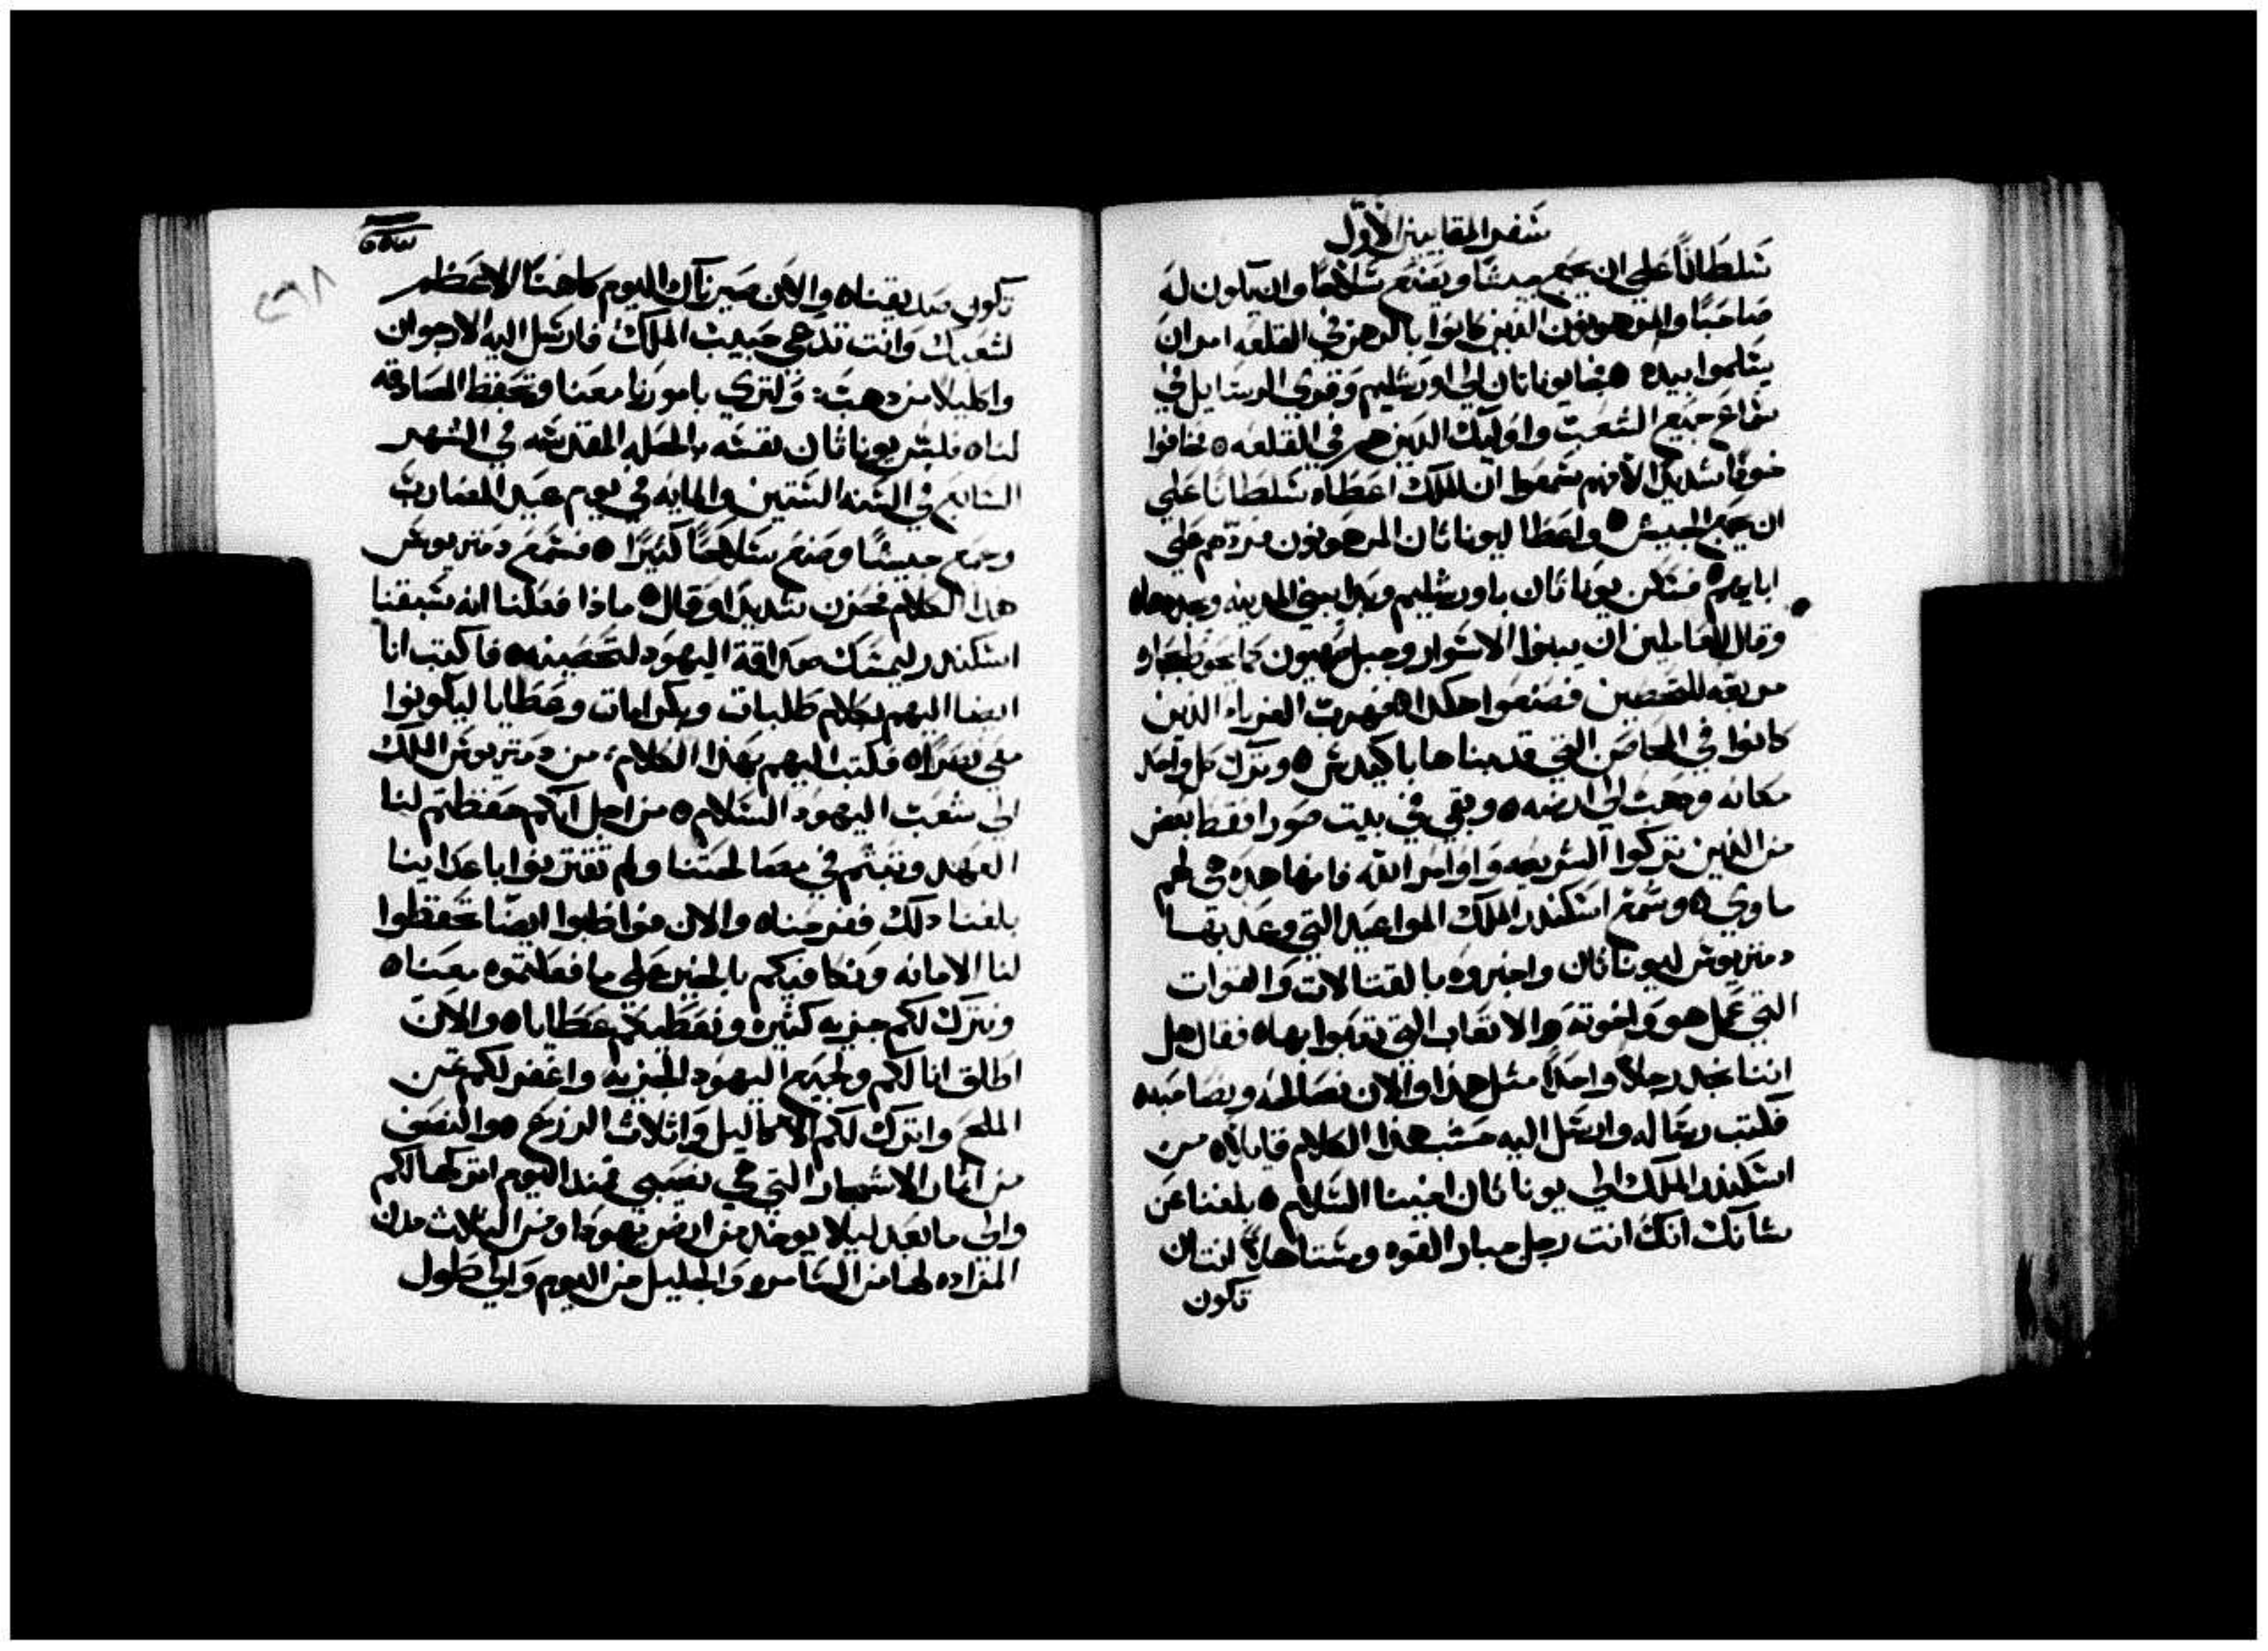 سفر المقابيين الاول
سلطانا على ان يجمع جيشا ويصنع سلاحا وان يكون له
صاحبا والمرهونون الذين كانوا بالرهن في القلعه امر ان
يتسلموا بيده ٥ فجا يوناتان الى اورشليم وقرى الرسايل في
سماع جميع الشعب واوليك الذين هم في القلعه ٥ فخافوا
خوفا شديدا لانهم سمعوا ان الملك اعطاه سلطانا على
ان يجمع الجيش ٥ واعطا ليوناتان المرهونون فردهم على
ابايهم ٥ فسكن يوناتان باورشليم وبدا يبني المدينه ويجددها ٥
وقال للعاملين ان يبنوا الاسوار وجبل صهيون كما يحوط بحجاره
مربعه للتحصين فصنعوا هكدا ٥ فهربت الغرباء الذين
كانوا في المحاصن التي قد بناها باكيدس ٥ وترك كل واحد
مكانه ودهب الى ارضه ٥ وبقي في بيت صورا فقط بعض
من الذين تركوا الشريعه واوامر الله فانها هده هي لهم
ماوي ٥ وسمع اسكندر الملك المواعيد التي وعد بها
دمتريوس ليوناتان واخبروه بالقتالات والقوات
التي عمل هو واخوته والاتعاب التي تعبوا بها ٥ فقال هل
اننا نجد رجلا واحدا مثل هذا والان نصالحه ونصاحبه
فكتب رساله وارسل اليه حسب هذا الكلام قايلا ٥ من
اسكندر الملك الى يوناتان اخينا السلام ٥ بلغنا عن
شانك انك انت رجل جبار القوه ومستاهلا لنتان
تكون
تكون صديقنا ٥ والان صيرناك اليوم كاهنا الاعظم
لشعبك وانت تدعي حبيب الملك فارسل اليه الارجوان
واكليلا من دهب ولترى بامورنا معنا وتحفظ المصادقه
لنا ٥ فلبس يوناتان نفسه بالحله المقدسه في الشهر
السابع في السنه الستين والمايه في يوم عيد المضارب
وجمع جيشا وصنع سلاحا كتيرا ٥ فسمع دمتريوس
هدا الكلام فحزن شديدا وقال ٥ ماذا فعلنا انه سبقنا
اسكندر ليمسك صداقة اليهود لتحصينه ٥ فاكتب انا
ايضا اليهم بكلام طلبات وبكرامات وعطايا ليكونوا
معي نصرا ٥ فكتب اليهم بهذا الكلام ، من دمتريوس الملك
الى شعب اليهود السلام ٥ من اجل انكم حفظتم لنا
العهد وثبتم في مصالحتنا ولم تقتربوا باعداينا
بلغنا دلك ففرحنا ٥ والان فواظبوا ايضا تحفظوا
لنا الامانه ونكافيكم بالخير على ما فعلتموه معنا ٥
ونترك لكم جزيه كثيره ونعطيكم عطايا ٥ والان
اطلق انا لكم ولجميع اليهود الجزيه واغفر لكم تمن
الملح واترك لكم الاكاليل واتلات الزرع ٥ والنصف
من اتمار الاشجار التي هي نصيبي فمند اليوم اتركها لكم
والى ما بعد ليلا يوخد من ارض يهودا ومن التلات مدن
المزاده لها من السامره والجليل من اليوم والى طول